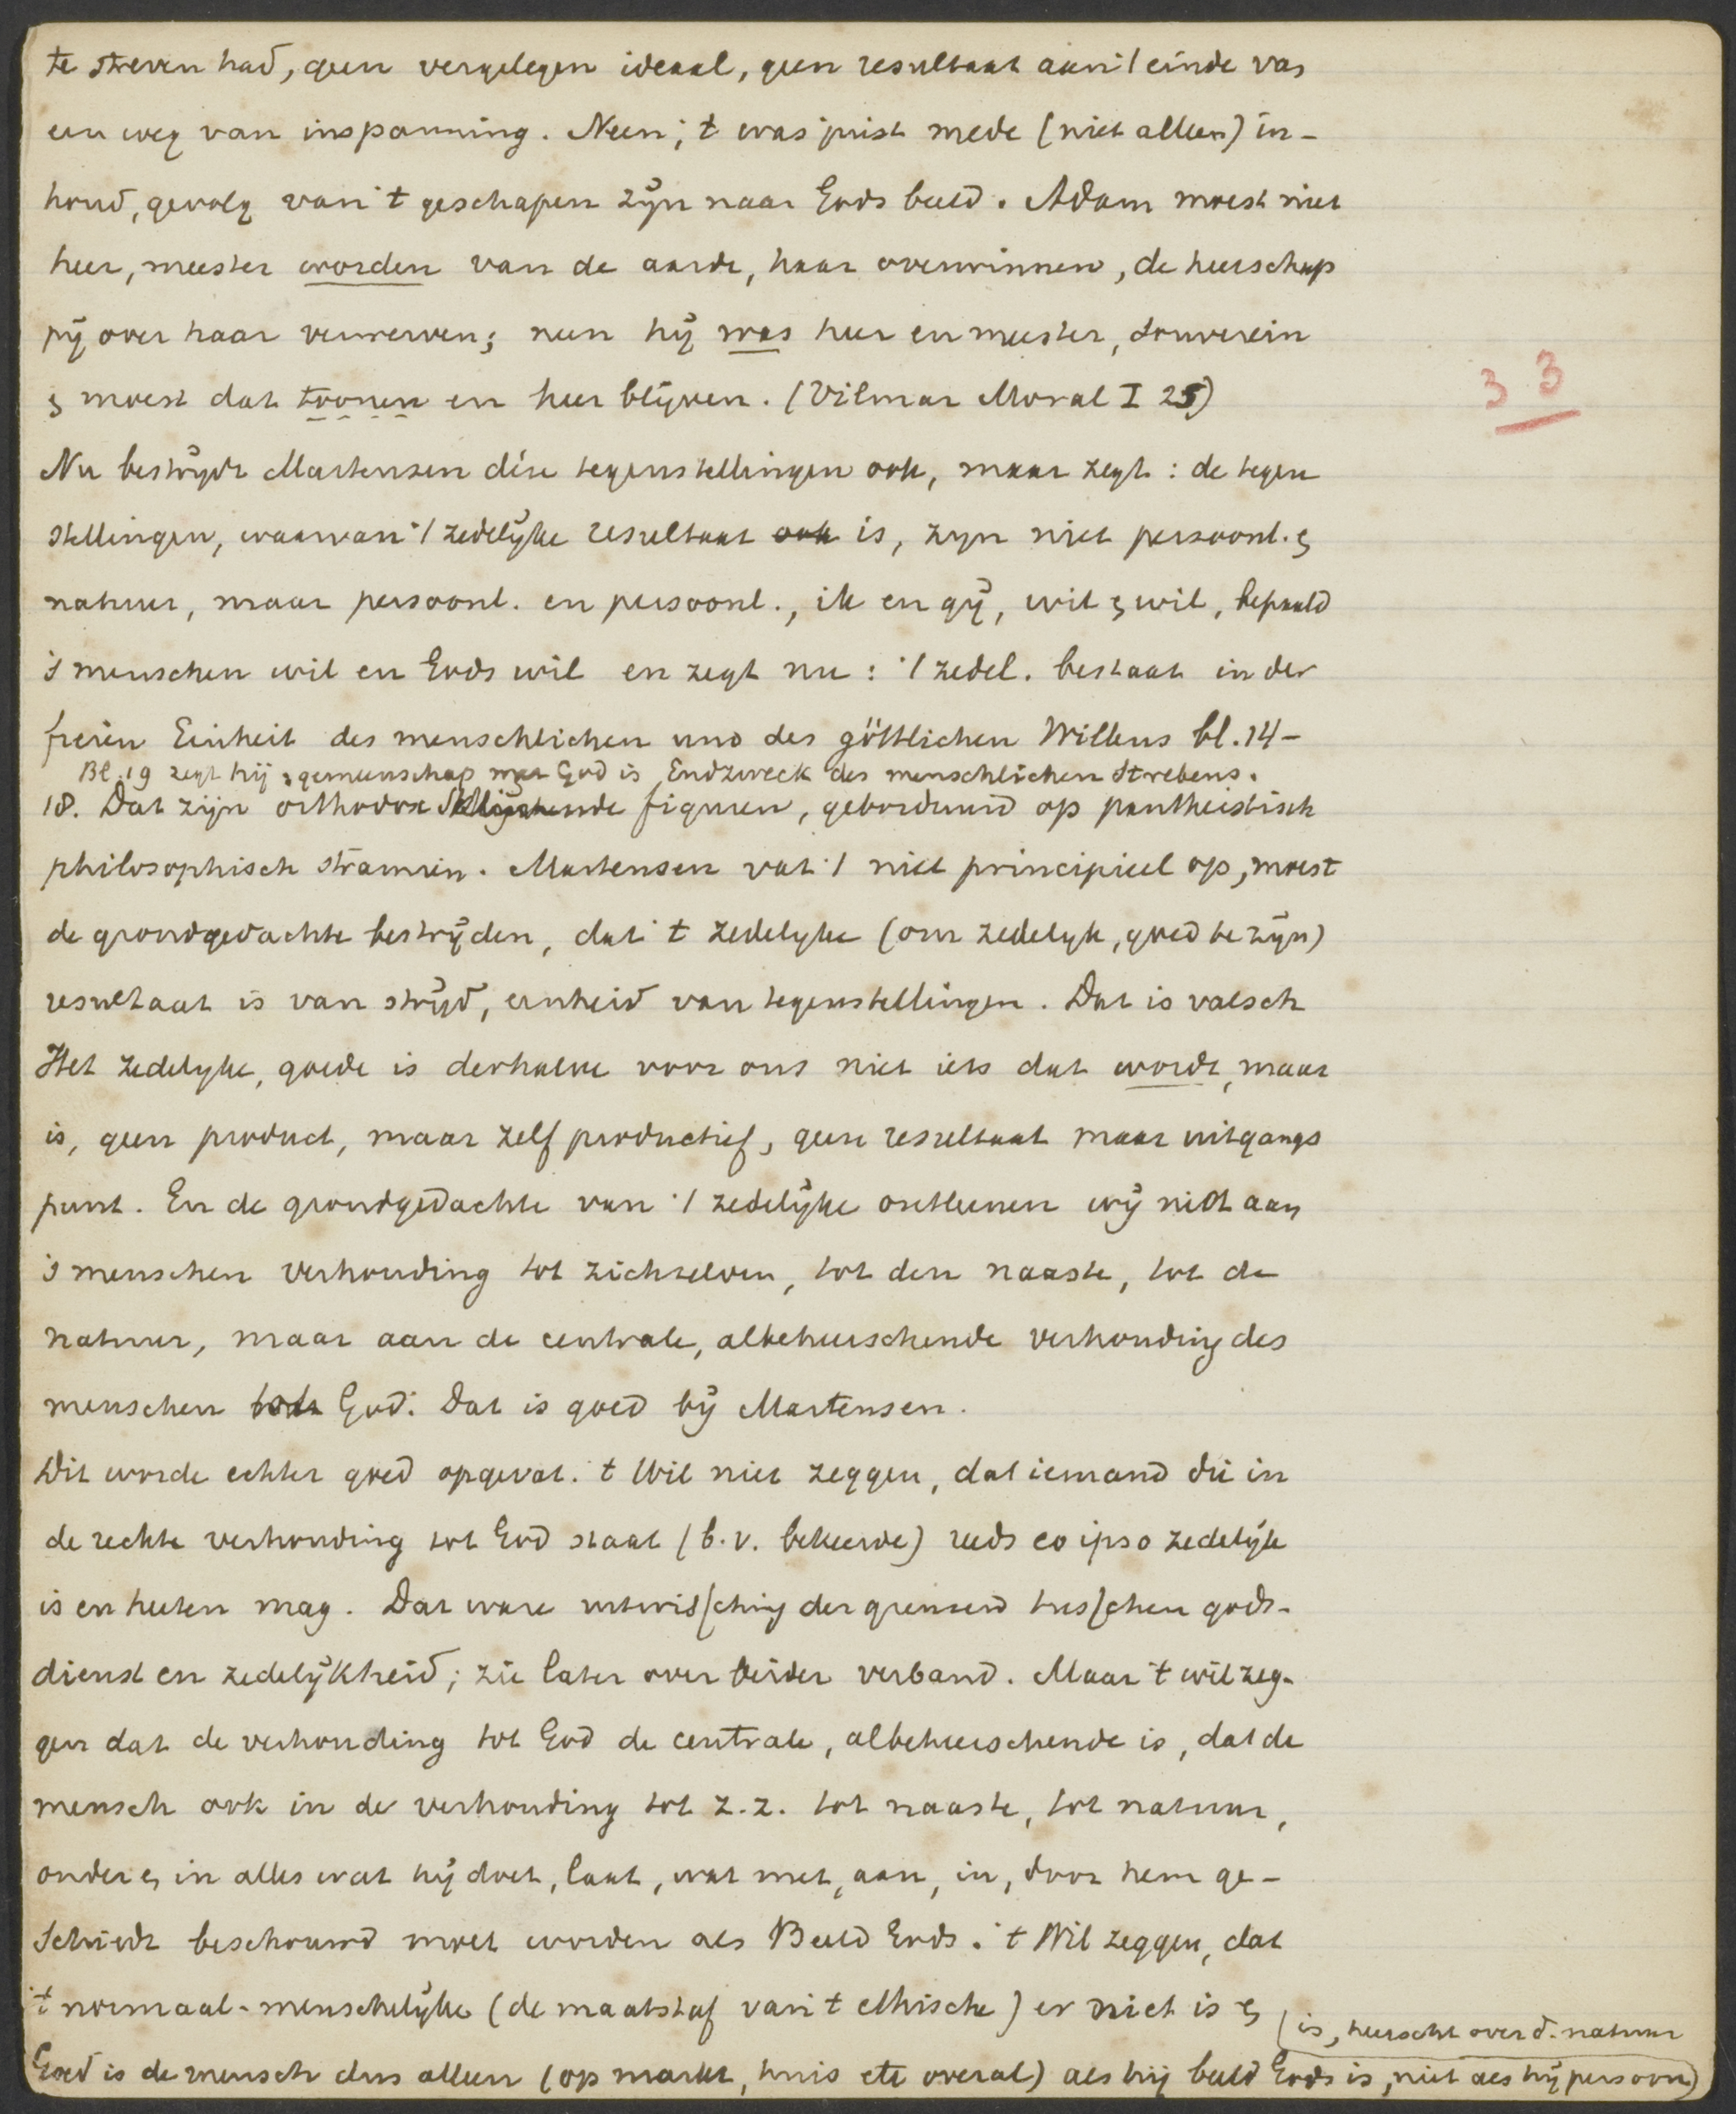 te streven had, geen vergelegen ideaal, geen resultaat aan 't einde van
een weg van inspanning. Neen; 't was juist mede (niet alleen) in-
houd, gevolg van 't geschapen zijn naar Gods beeld. Adam moest niet
heer, meester worden van de aarde, haar overwinnen, de heerschap
pij over haar verwerven; neen hij was heer en meester, souverein
& moest dat toonen en heer blijven. (Vilmar Moral I 25)
33
Nu bestrijdt Martensen deze tegenstellingen ook, maar zegt: de tegen
stellingen, waarvan 't zedelijke resultaat ook is, zijn niet persoonl. &
natuur, maar persoonl. en persoonl., ik en gij, wil & wil, bepaald
's menschen wil en Gods wil en zegt nu: 't zedel. bestaat in der
freien Einheit des menschlichen und des göttlichen Willens bl. 14-
Bl. 19 zegt hij: gemeenschap met God is Endzweck des menschlichen Strebens.
18. Dat zijn orthodox figuren, geborduurd op pantheistisch
philosophisch stramien. Martensen vat 't niet principieel op, moest
de grondgedachte bestrijden, dat 't zedelijke (om zedelijk, goed te zijn)
resultaat is van strijd, eenheid van tegenstellingen. Dat is valsch
Het zedelijke, goede is derhalve voor ons niet iets dat wordt, maar
is, geen product, maar zelf productief, geen resultaat maar uitgangs
punt. En de grondgedachte van 't zedelijke ontleenen wij niet aan
's menschen verhouding tot zichzelven, tot den naaste, tot de
natuur, maar aan de centrale, albeheerschende verhouding des
menschen tot God. Dat is goed bij Martensen.
Dit worde echter goed opgevat. 't Wil niet zeggen, dat iemand die in
de rechte verhouding tot God staat (b.v. bekeerde) reeds eo ipso zedelijk
is en heeten mag. Dat ware uitwissching der grenzen tusschen gods-
dienst en zedelijkheid; zie later over beider verband. Maar 't wil zeg-
gen dat de verhouding tot God de centrale, albeheerschende is, dat de
mensch ook in de verhouding tot z.z. tot naaste, tot natuur,
onder & in alles wat hij doet, laat, wat met, aan, in, door hem ge-
schiedt beschouwd moet worden als Beeld Gods. 't Wil zeggen, dat
't normaal-menschelijke (de maatstaf van 't ethische) er niet is &
Goed is de mensch dus alleen (op markt, huis etc overal) als hij beeld Gods is, niet als hij persoon
is, heerscht over d. natuur